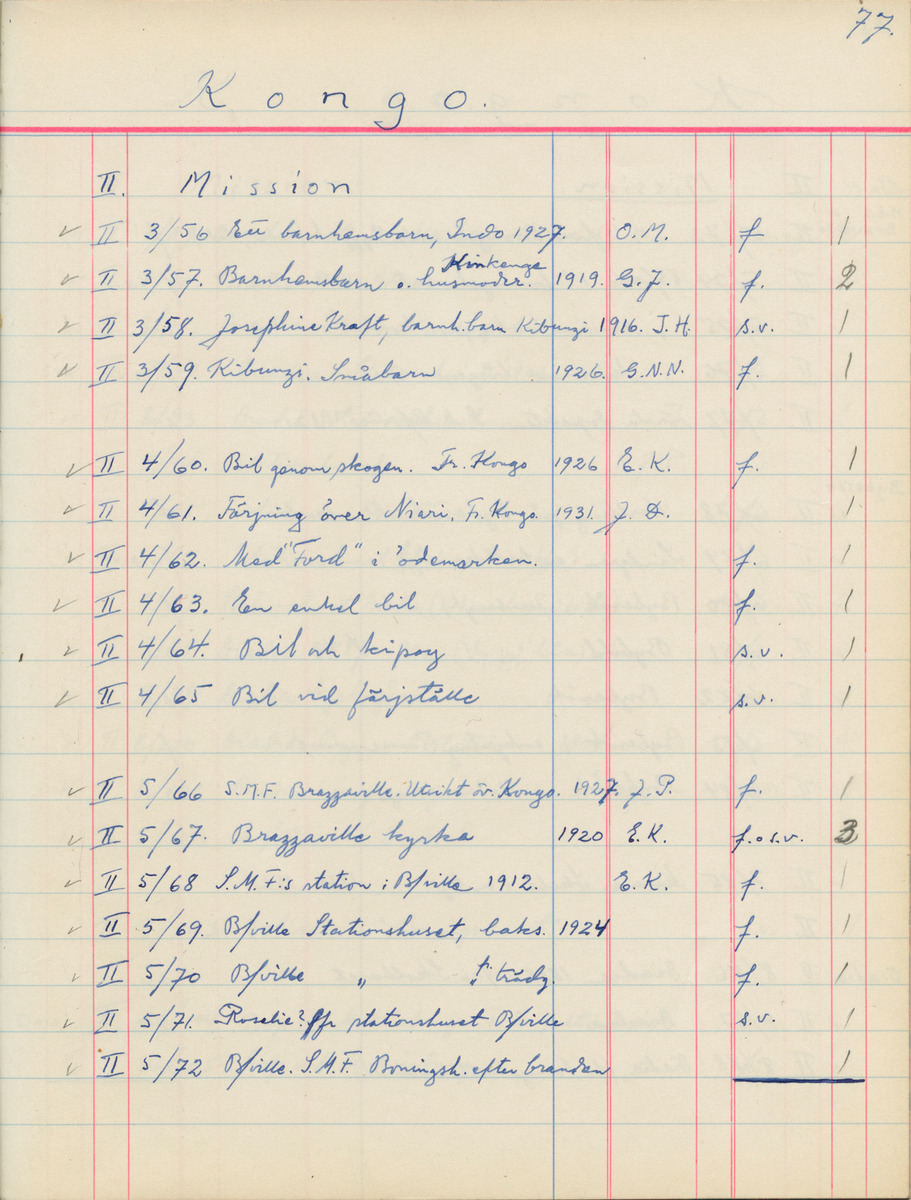 77.
Kongo.
II. Mission
✓ II 3/56 Ett barnhemsbarn, Indo 1927. O.M. f 1
Kinkenge
✓ II 3/57. Barnhemsbarn o. husmoder. 1919. G.J. f. 2
✓ II 3/58. Josephine Kraft, barnh.barn Kibunzi 1916. J.H. s.v. 1
✓ II 3/59. Kibunzi. Småbarn 1926. G.N.N. f. 1
✓ II 4/60. Bil genom skogen. Fr. Kongo 1926 E.K. f. 1
✓ II 4/61. Färjning över Niari. Fr. Kongo. 1931. J.D. 1
✓ II 4/62. Med "Ford" i ödemarken. f. 1
✓ II 4/63. En enkel bil f. 1
✓ II 4/64. Bil och kipoy s.v. 1
✓ II 4/65 Bil vid färjställe s.v. 1
✓ II 5/66 S.M.F. Brazzaville. Utsikt öv. Kongo. 1927. J.P. f. 1
✓ II 5/67. Brazzaville kyrka 1920 E.K. f. o s.v. 3
✓ II 5/68 S.M.F:s station i B/ville 1912. E.K. f. 1
✓ II 5/69. B/ville Stationshuset, baks. 1924 f. 1
✓ II 5/70 B/ville " " fr. trädg. f. 1
✓ II 5/71. Roselie? fr stationshuset B/ville s.v. 1
✓ II 5/72 B/ville. S.M.F. Boningsh. efter branden 1